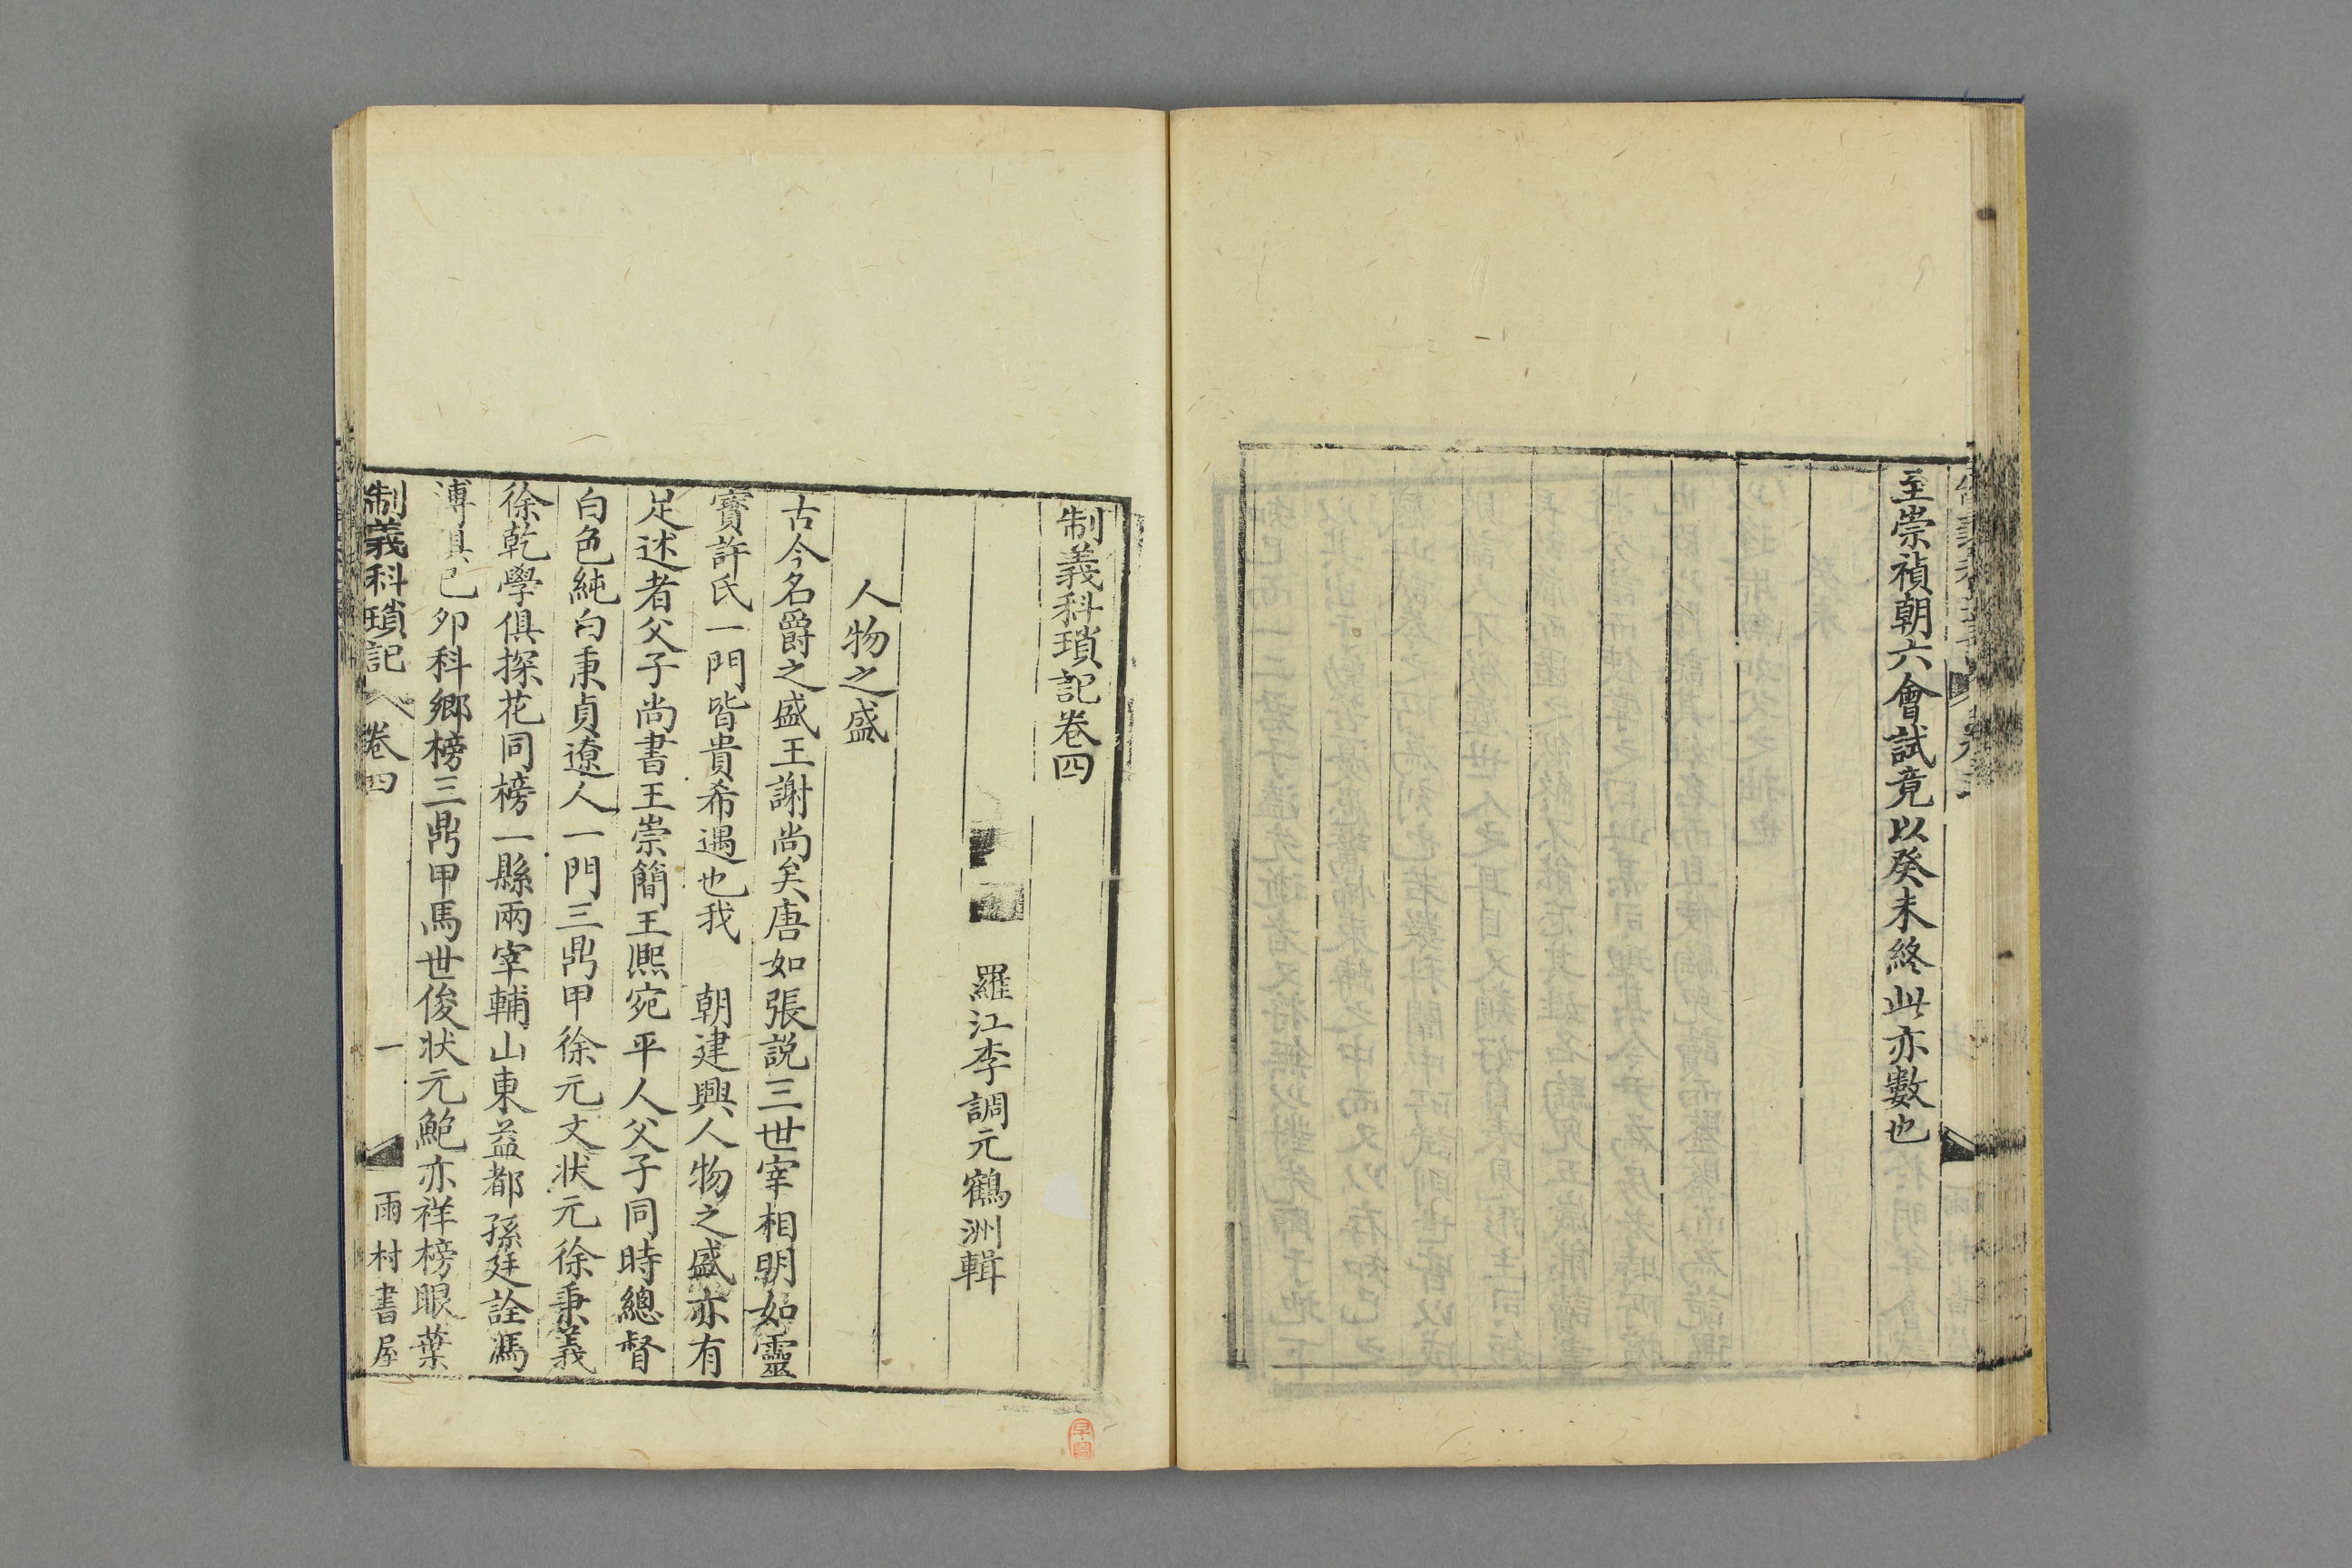 至崇禎朝六會試竟以癸未終此亦數也
制義科瑣記卷四
羅江李調元鶴洲輯
人物之盛
古今名爵之盛王謝尚矣唐如張説三世宰相明如靈
寶許氏一門皆貴希遇也我 朝建興人物之盛亦有
足述者父子尚書王崇簡王熙宛平人父子同時總督
白色純白秉貞遼人一門三鼎甲徐元文状元徐秉義
徐乾學俱探花同榜一縣兩宰輔山東益都孫廷詮馮
溥俱己夘科鄉榜三鼎甲馬世俊状元鮑亦祥榜眼葉
制義科瑣記 卷四 一 雨村書屋